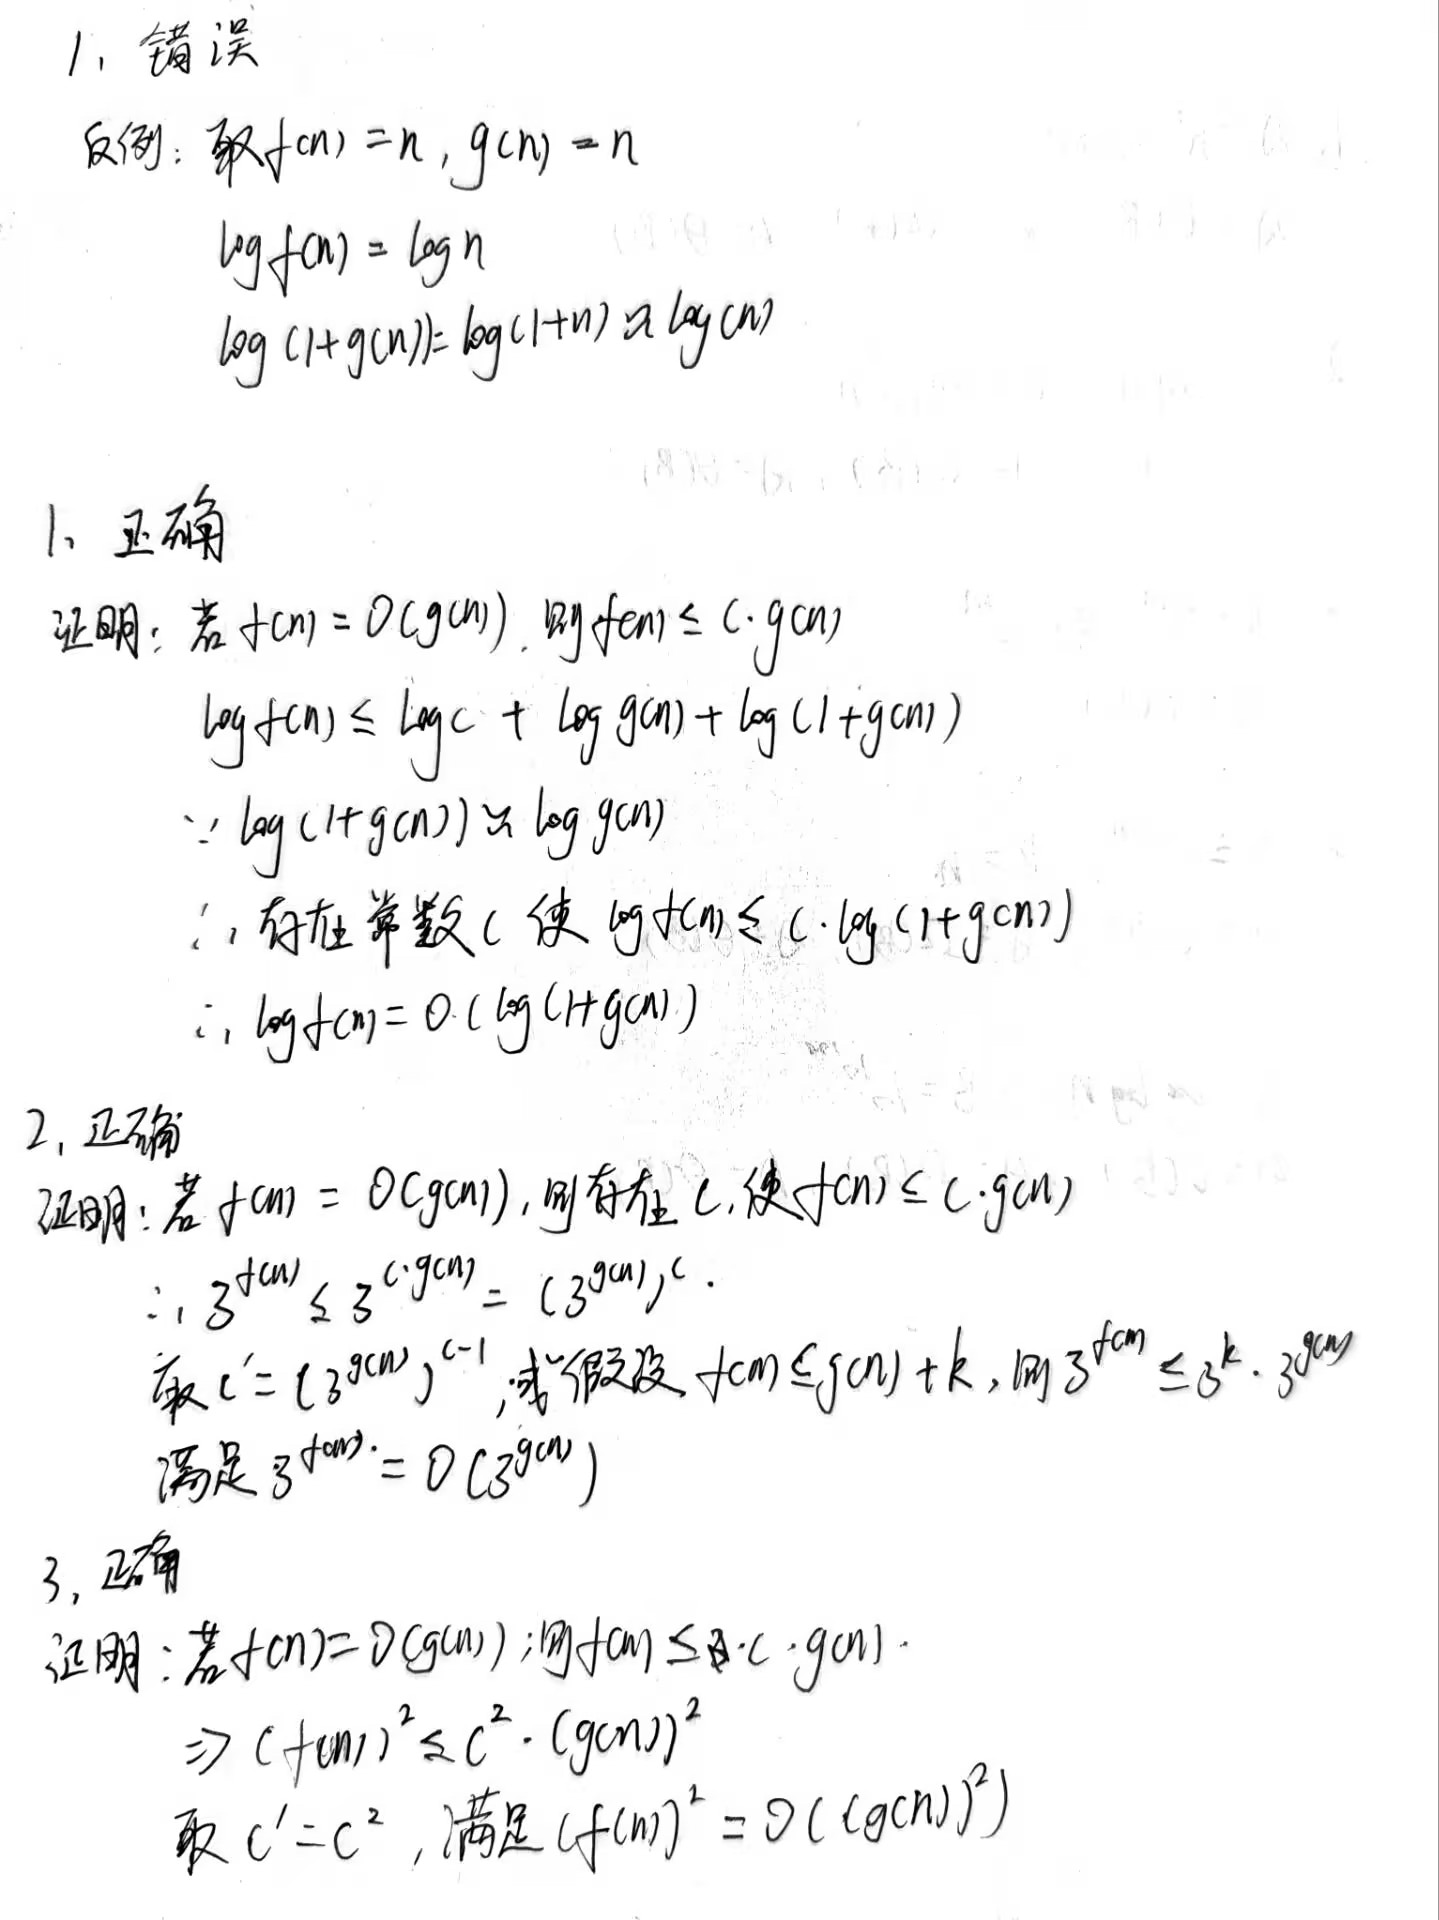 1、错误
反例：取f(n)=n，g(n)=n
log f(n) = log n
log(1+g(n))=log(1+n)≈log(n)
1、正确
证明：若f(n)=O(g(n))，则f(n)≤c·g(n)
log f(n) ≤ log c + log g(n) + log(1+g(n))
∵ log(1+g(n))≈log g(n)
∴存在常数c使 log f(n)≤c·log(1+g(n))
∴ log f(n)=O(log(1+g(n))
2、正确
证明：若f(n)=O(g(n))，则存在c，使f(n)≤c·g(n)
∴ 3^f(n) ≤ 3^c·g(n) = (3^g(n))^c.
取c'=(3^g(n))^c-1，或假设f(n)≤g(n)+k，则3^f(n)≤3^k·3^g(n)
满足3^f(n)=O(3^g(n))
3、正确
证明：若f(n)=O(g(n))；则f(n)≤·c·g(n)·
⇒(f(n))²≤c²·(g(n))²
取c'=c²，满足(f(n))²=O((g(n))²)